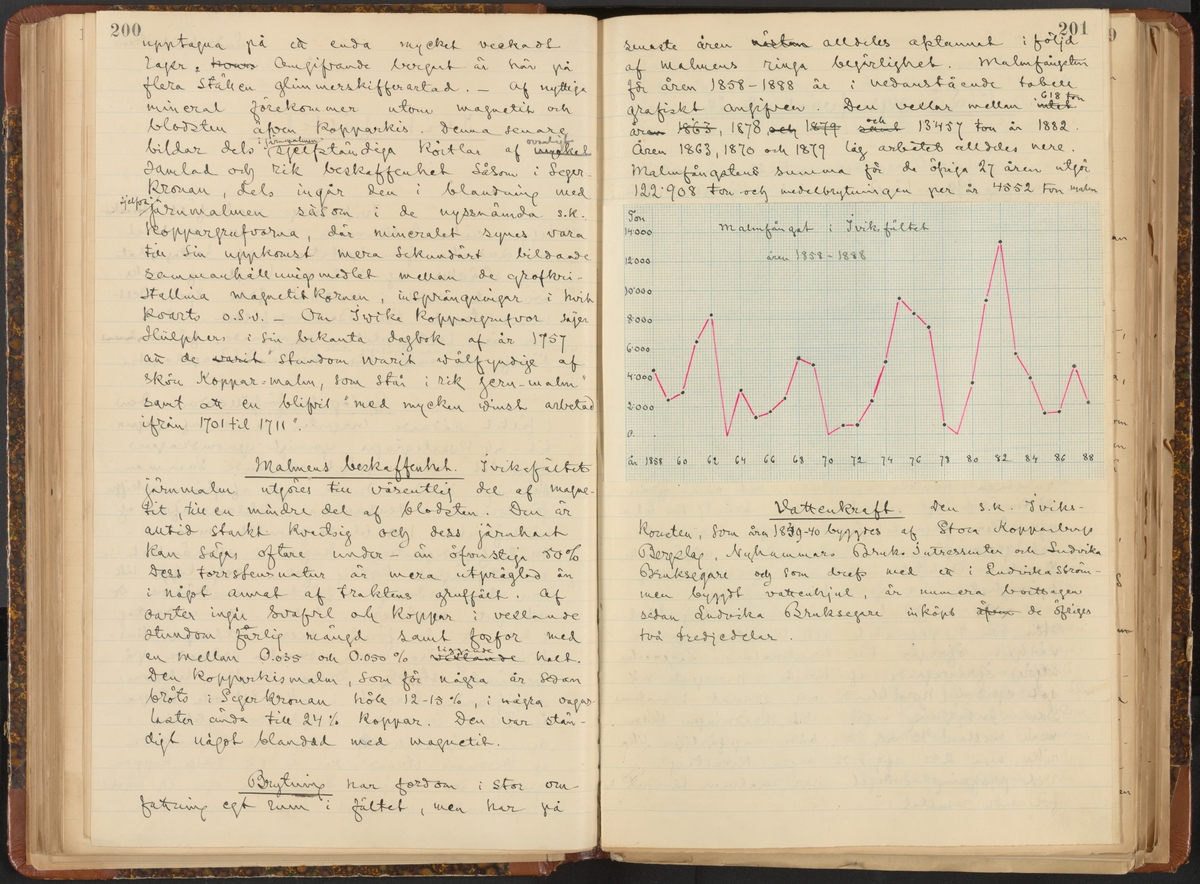 200
upptagna på ett enda mycket veckadt
lager. Omgifvande berget är här på
flera ställen glimmerskifferartad. — Af nyttiga
mineral förekommer utom magnetit och
blodsten äfven kopparkis. Denna senare
bildar dels i järnmalmen sjelfständiga körtlar af ovanligt mycket
samlad och rik beskaffenhet såsom i Seger-
kronan, dels ingår den i blandning med
sjelfva järnmalmen såsom i de nyssnämda s.k.
koppargrufvorna, där mineralet synes vara
till sin uppkomst mera sekundärt bildande
sammanhållningsmedlet mellan de grofkri-
stallina magnetitkornen, insprängningar i hvit
kvarts o.s.v. — Om Iviks koppargrufvor säger
Hülphers i sin bekanta dagbok af år 1757
att de warit "stundom warit wälfyndige af
skön Koppar-malm, som står i rik Jern-malm"
samt att en blifvit "med mycken winst arbetad
ifrån 1701 til 1711".
Malmens beskaffenhet. Iviksfältets
järnmalm utgöres till väsentlig del af magne-
tit, till en mindre del af blodsten. Den är
alltid starkt kvartsig och dess järnhalt
kan sägas oftare under- än öfverstiga 50%
Dess torrstensnatur är mera utpräglad än
i något annat af traktens gruffält. Af
arter ingår svafvel och koppar i vexlande
stundom färlig mängd samt fosfor med
en mellan 0.035 och 0.050 % liggande vexlande halt.
Den kopparkismalm, som för några år sedan
bröts i Segerkronan höll 12-15 %, i några vagns-
laster ända till 24 % koppar. Den var stän-
digt något blandad med magnetit.
Brytning har fordom i stor om-
fattning egt rum i fältet, men har på
201
senaste åren nästan alldeles afstannat i följd
af malmens ringa begärlighet. Malmfångsten
för åren 1858-1888 är i nedanstående tabell
grafiskt angifven. Den vexlar mellan intet 618 ton
åren 1863, 1878 och 1879 samt och 13457 ton år 1882.
Åren 1863, 1870 och 1879 låg arbetet alldeles nere.
Malmfångstens summa för de öfriga 27 åren utgör
122.908 ton och medelbrytningen per år 4552 ton malm
Ton
14.000
12.000
10.000
8.000
6.000
4.000
2.000
0.
Malmfångst i Iviksfältet
åren 1858-1888
år 1858 60 62 64 66 68 70 72 74 76 78 80 82 84 86 88
Vattenkraft. Den s.k. Iviks-
konsten, som åren 1839-40 byggdes af Stora Kopparbergs
Bergslag, Nyhammars Bruks Intressenter och Ludvika
Bruksegare och som drefs med ett i Ludvika Ström-
men byggdt vattenhjul, är numera borttagen
sedan Ludvika Bruksegare inköpt äfven de öfriges
två tredjedelar.